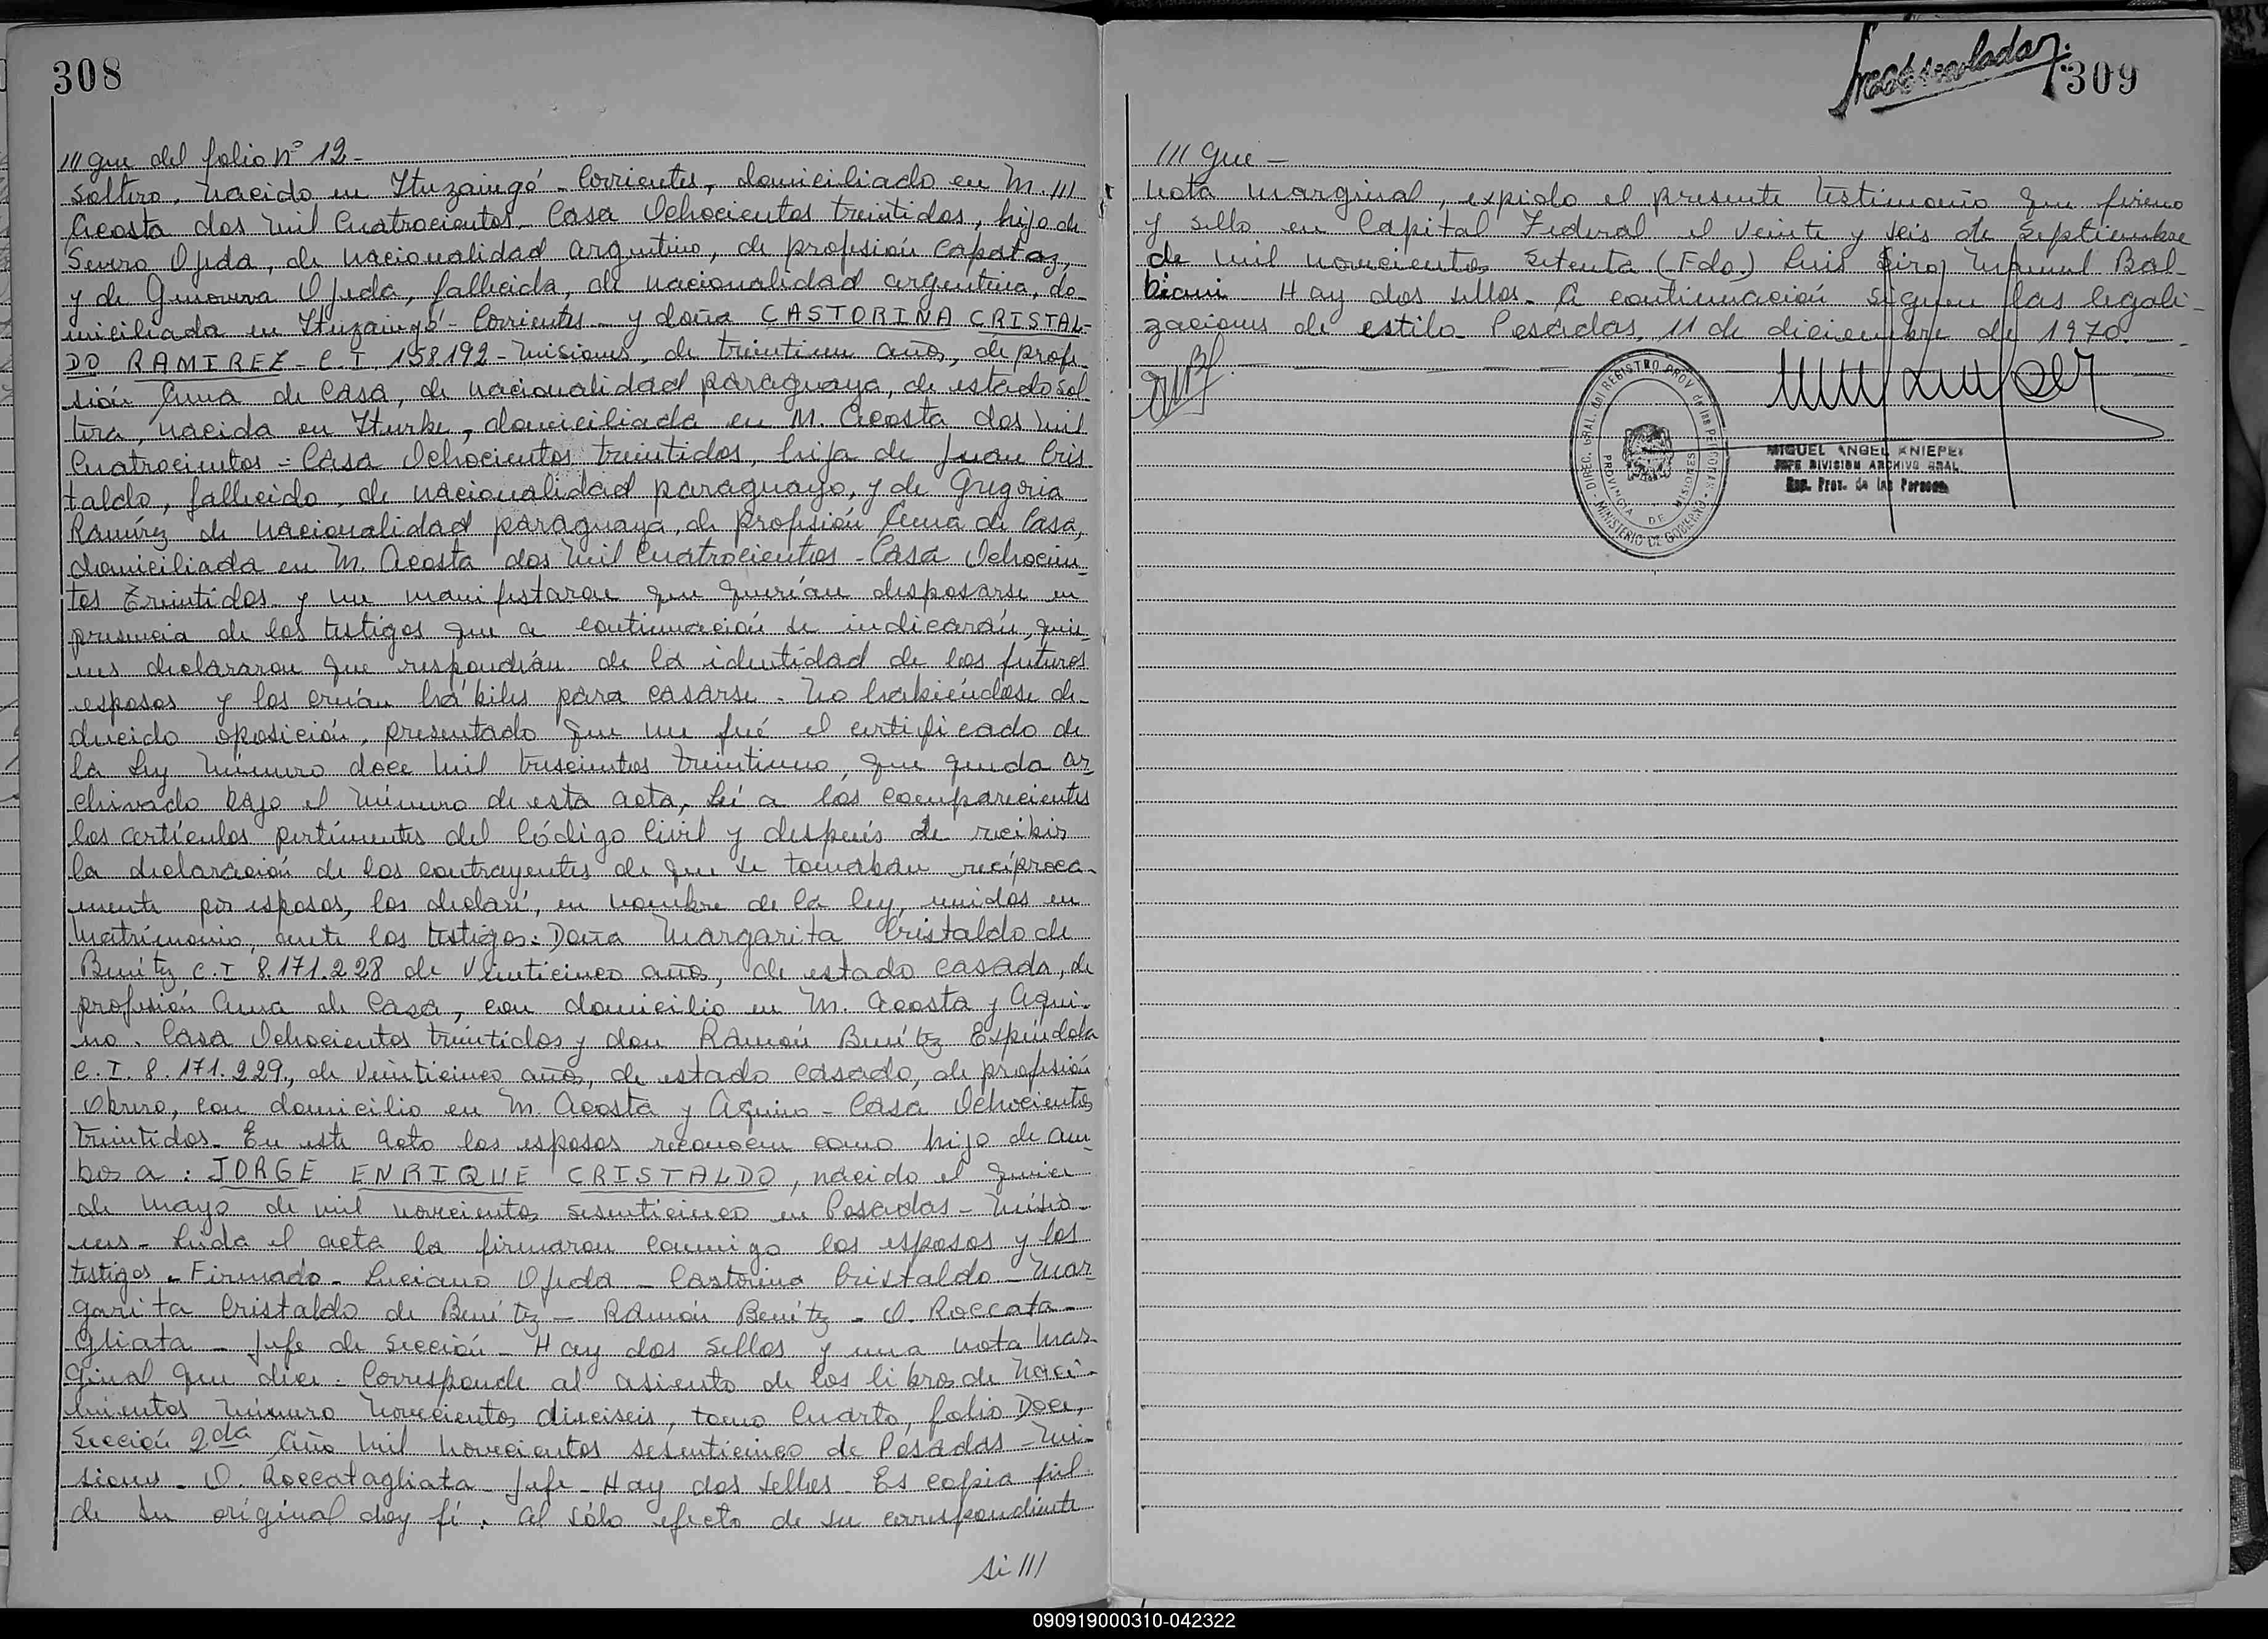 308
/// gue del folio nº 12-
soltero, nacido en Ituzaingó - Corrientes, domiciliado en M. ///
Acosta dos mil Cuatrocientos - Casa Ochocientos treintidos, hijo de
Severo Ojeda, de nacionalidad argentino, de profesión Capataz,
y de Genoveva Ojeda, fallecida, de nacionalidad argentina, do-
miciliada en Ituzaingó - Corrientes - y doña CASTORINA CRISTAL-
DO RAMIREZ - C.I. 158192 - Misiones, de treintiun años, de profe-
sión Ama de Casa, de nacionalidad paraguaya, de estado sol-
tera, nacida en Iturbe, domiciliada en M. Acosta dos mil
Cuatrocientos - Casa Ochocientos treintidos, hija de Juan Cris
taldo, fallecido, de nacionalidad paraguayo, y de Gregoria
Ramírez de nacionalidad paraguaya, de profesión Ama de Casa,
domiciliada en M. Acosta dos mil Cuatrocientos - Casa Ochocien-
tos Treintidos y me manifestaron que querían desposarse en
presencia de los testigos que a continuación se indicarán, quie-
nes declararon que respondían de la identidad de los futuros
esposos y los creían hábiles para casarse. No habiéndose de-
ducido oposición, presentado que me fué el certificado de
la Ley número doce mil trescientos treintiuno, que queda ar-
chivado bajo el número de esta acta, leí a los comparecientes
los artículos pertinentes del Código Civil y después de recibir
la declaración de los contrayentes de que se tomaban recíproca-
mente por esposos, los declaré, en nombre de la ley, unidos en
Matrimonio, ante los testigos: Doña Margarita Cristaldo de
Benítez C.I 8.171.228 de Veinticinco años, de estado casada, de
profesión Ama de Casa, con domicilio en M. Acosta y Aqui-
no. Casa Ochocientos treintidos y don Ramón Benítez Espíndola
C.I. 8.171.229., de veinticinco años, de estado Casado, de profesión
Obrero, con domicilio en M. Acosta y Aquino - Casa Ochocientos
treintidos. En este acto los esposos reconocen como hijo de am-
bos a: JORGE ENRIQUE CRISTALDO, nacido el quince
de Mayo de mil novecientos sesenticinco en Posadas - Misio-
nes - Leída el acta la firmaron conmigo los esposos y los
testigos - Firmado - Luciano Ojeda - Castorina Cristaldo - Mar-
garita Cristaldo de Benítez - Ramón Benítez - O. Roccata-
gliata - Jefe de Sección - Hay dos sellos y una nota mar-
ginal que dice: Corresponde al asiento de los libros de Naci-
mientos número novecientos dieciseis, tomo Cuarto, folio Doce,
Sección 2da Año mil novecientos sesenticinco de Posadas - Mi-
siones. O. Roccatagliata - Jefe - Hay dos sellos - Es copia fiel
de su original doy fé. Al sólo efecto de su correspondiente
Si ///
309
/// gue -
nota marginal, expido el presente testimonio que firmo
y sello en Capital Federal el veinte y seis de Septiembre
de mil novecientos setenta. (Fdo.) Luis Manuel Bal-
biani - Hay dos sellos - A continuación siguen las legali-
zaciones de estilo. Posadas, 11 de diciembre de 1970.
DIREC. GRAL. del REGISTRO PROV. de las PERSONAS
MINISTERIO DE GOBIERNO
PROVINCIA DE MISIONES
MIGUEL ANGEL KNIEPER
JEFE DIVISION ARCHIVO GRAL.
Reg. Prov. de las Personas
090919000310-042322